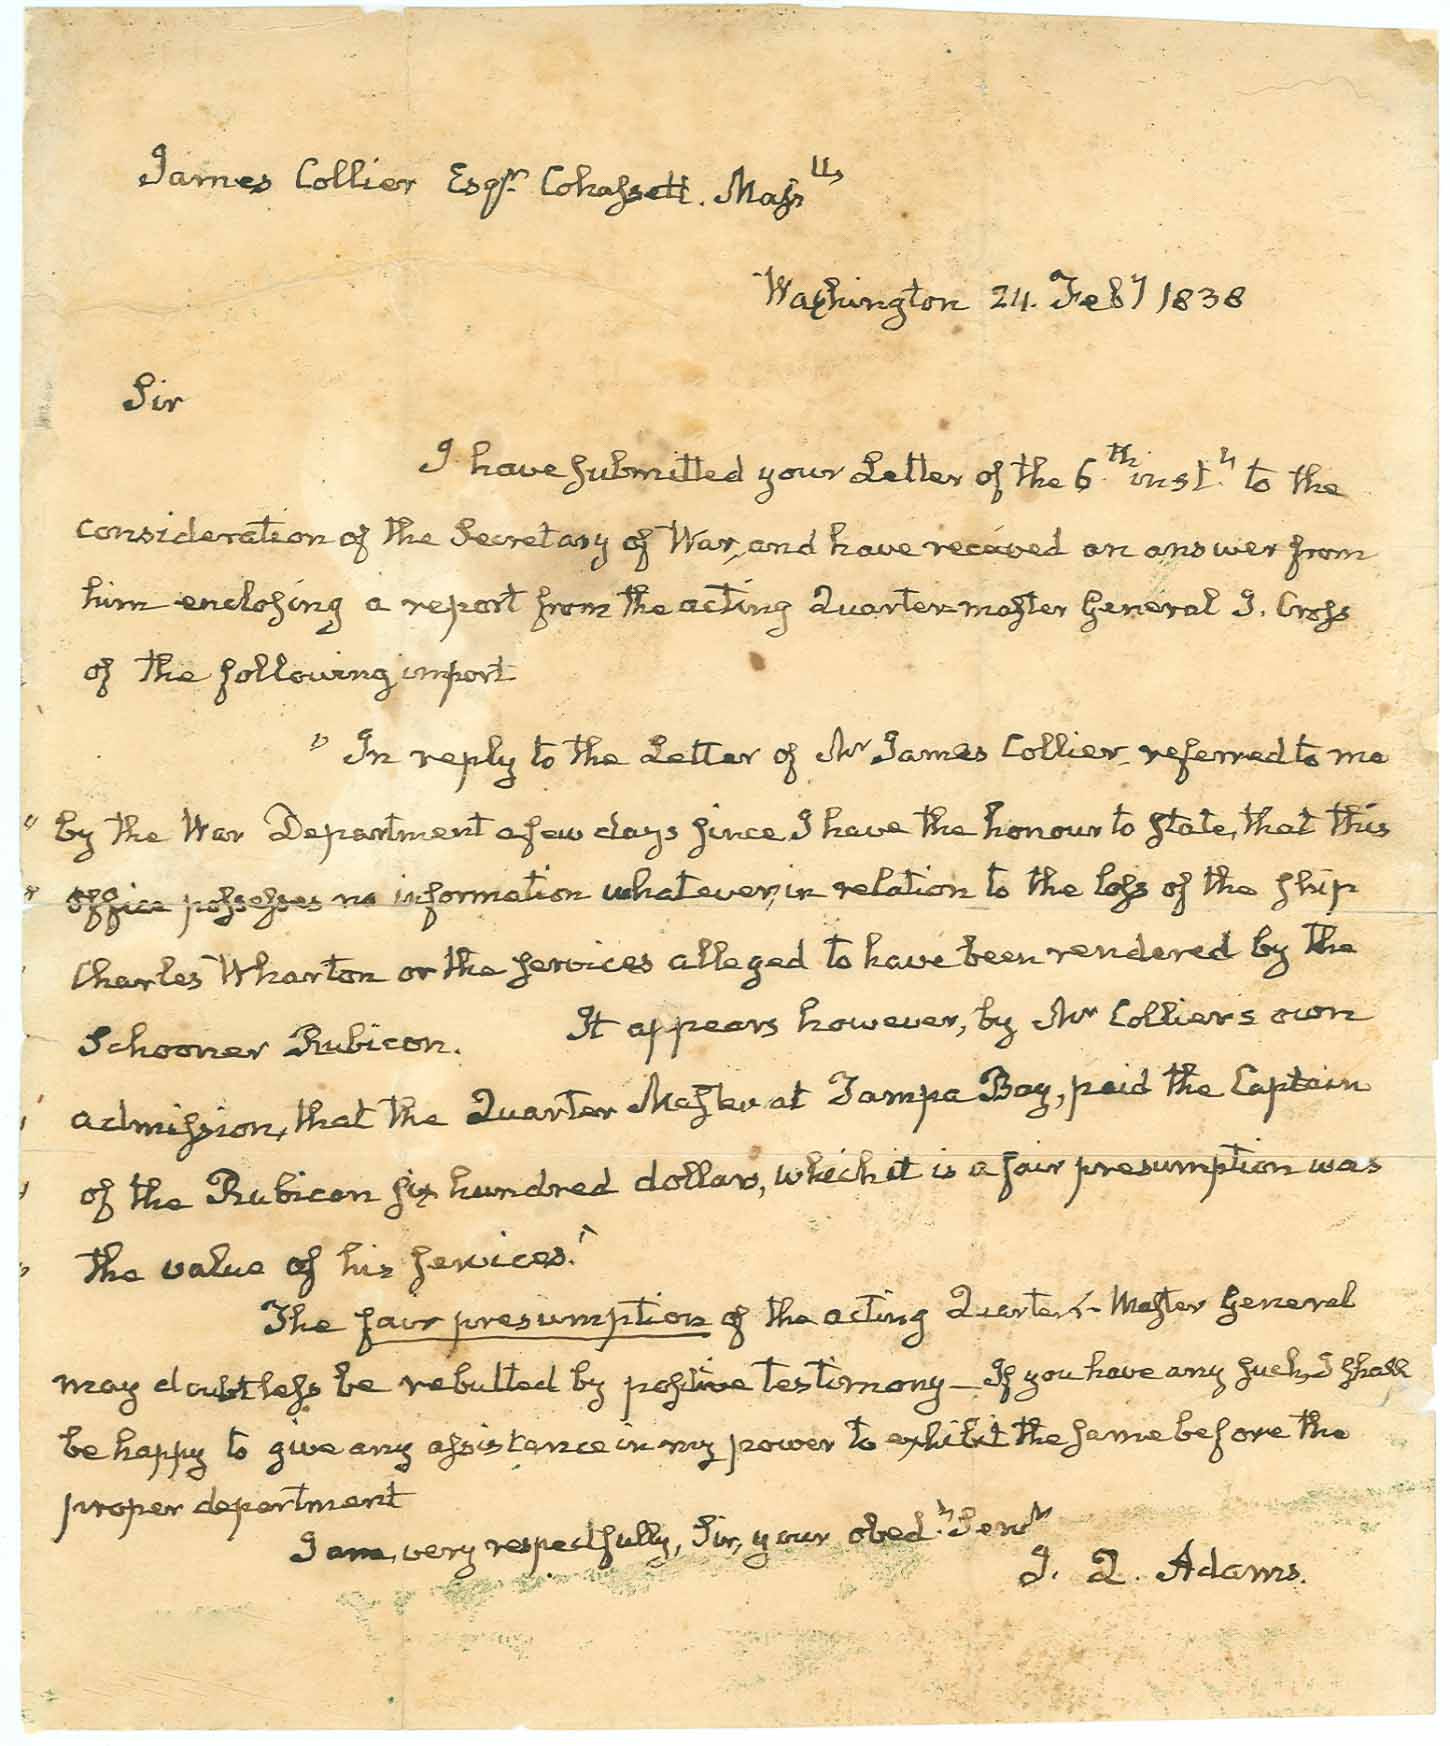 James Collier Esqr. Cohassett. Masstts
Washington 24. Feby 1838
Sir
I have submitted your Letter of the 6th. inst. to the
consideration of the Secretary of War, and have received an answer from
him enclosing a report from the acting Quarter-master General J. Cross
of the following import
" In reply to the Letter of Mr James Collier referred to me
" by the War Department a few days since I have the honour to state, that this
" office possesses no information whatever, in relation to the loss of the ship
Charles Wharton or the services alleged to have been rendered by the
Schooner Rubicon. It appears however, by Mr Colliers own
admission, that the Quarter Master at Tampa Bay, paid the Captain
of the Rubicon six hundred dollars, which it is a fair presumption was
" the value of his services."
The fair presumption of the acting Quarter-Master General
may doubtless be rebutted by positive testimony — If you have any such, I shall
be happy to give any assistance in my power to exhibit the same before the
proper department
I am, very respectfully, Sir, your obed. Servt
J. Q. Adams.